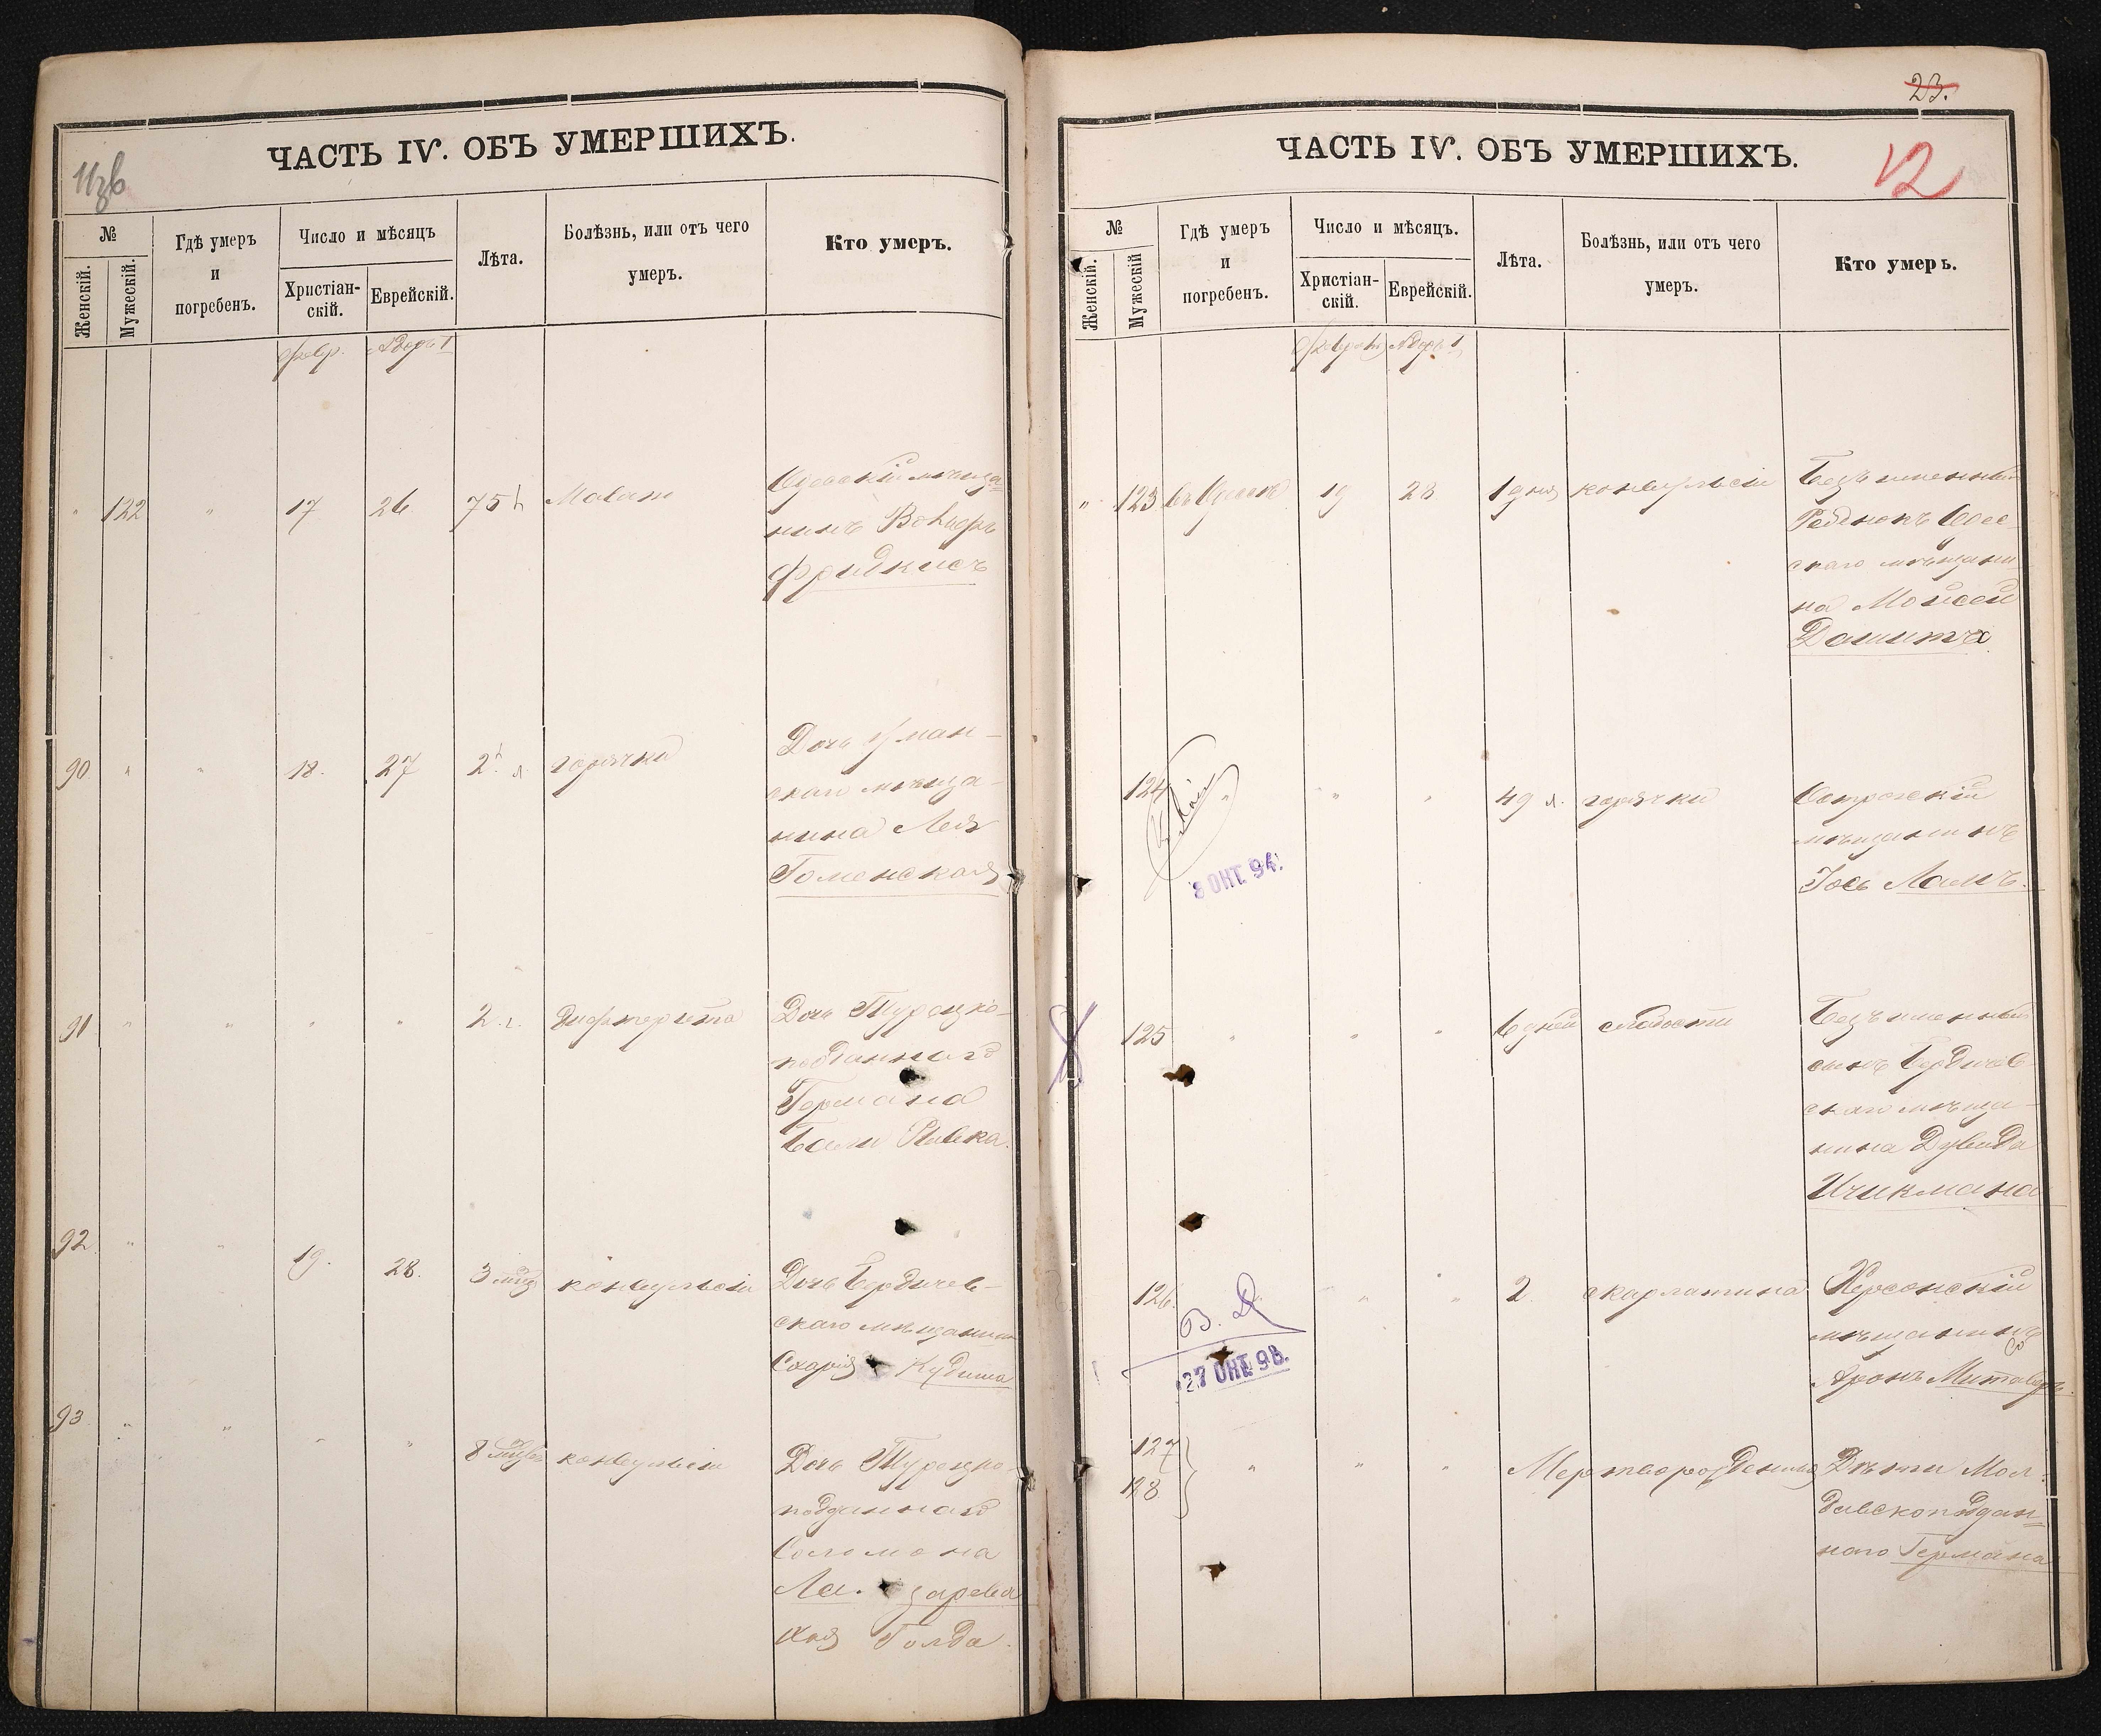 ЧАСТЬ IV. ОБЪ УМЕРШИХЪ.
№
Женскій.
Мужескій.
Гдѣ умеръ
и
погребенъ.
Число и мѣсяцъ
Христіан-
скій.
Еврейскій.
Лѣта.
Болѣзнь, или отъ чего
умеръ.
Кто умеръ.
февр.
Адоръ I
" 122 " 17 26 75
мѣща
нинъ
Фридкисъ
90 " " 18. 27 2 л. горячка
Дочь Уман-
скаго мѣща-
нина Лея
Гоменская
91 " " " " 2. г. Дифтерита
Дочь Турецко-
подданнаго
Германа
Ривка.
92 " " 19. 28. 3 конвульсіи
Дочь Бердичев-
скаго мѣщанина
Кудиша
93 " " " " 8 конвульсіи
Дочь Турецко-
подданнаго
Соломона
Ла. зарева
Хая Голда.
23.
ЧАСТЬ IV. ОБЪ УМЕРШИХЪ.
12
№
Женскій.
Мужескій
Гдѣ умеръ
и
погребенъ.
Число и мѣсяцъ.
Христіан-
скій.
Еврейскій.
Лѣта.
Болѣзнь, или отъ чего
умеръ.
Кто умеръ.
Адоръ I
" 123 въ Одессѣ 19 28 1 дня конвульсіи
Безъименный
Ребенокъ Одес-
скаго мѣщани
на Мойсея
124 " " " 49 л. горячки
Острожскій
мѣщанинъ
Іось Ламъ.
8 ОКТ. 94.
125 " " " 6 дней слабости
Безъименный
сынъ Бердичев-
скаго мѣща-
нина Дувида
Ицикмана
126. " " 2 скарлатина
Херсонскій
мѣщанинъ
Аронъ
В. Д
27 ОКТ. 98.
127
128 " " " Мертворожденные
Дѣти Мол-
давскоподдан-
наго Германа